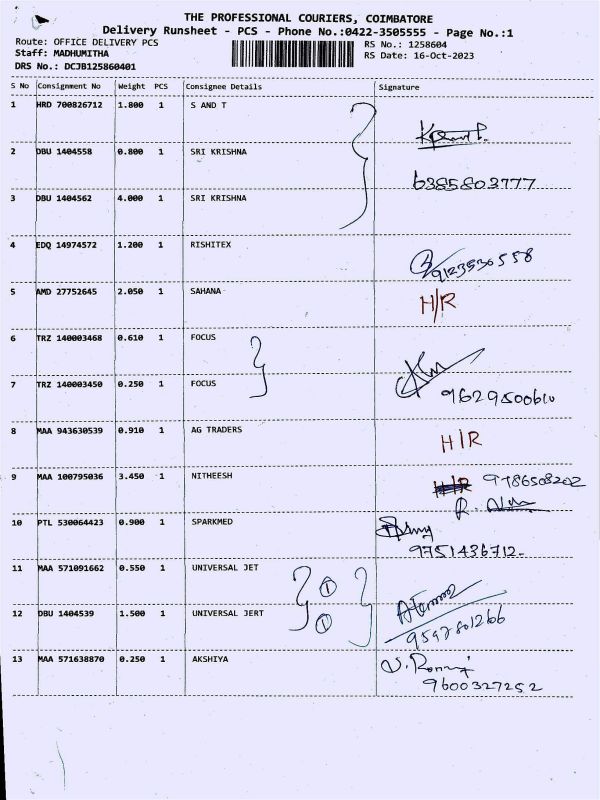 THE PROFESSIONAL COURIERS, COIMBATORE
Delivery Runsheet - PCS - Phone No.:0422-3505555 - Page No.:1
Route: OFFICE DELIVERY PCS RS No.: 1258604
Staff: MADHUMITHA RS Date: 16-Oct-2023
DRS No.: DCJB125860401
S No Consignment No Weight PCS Consignee Details Signature
1 HRD 700826712 1.800 1 S AND T
2 DBU 1404558 0.800 1 SRI KRISHNA
6385803777
3 DBU 1404562 4.000 1 SRI KRISHNA
4 EDQ 14974572 1.200 1 RISHITEX
9123536558
5 AMD 27752645 2.050 1 SAHANA H/R
6 TRZ 140003468 0.610 1 FOCUS
7 TRZ 140003450 0.250 1 FOCUS 9629500610
8 MAA 943630539 0.910 1 AG TRADERS H/R
9 MAA 100795036 3.450 1 NITHEESH H/R 9786508202
10 PTL 530064423 0.900 1 SPARKMED
9751436712
11 MAA 571091662 0.550 1 UNIVERSAL JET 1
12 DBU 1404539 1.500 1 UNIVERSAL JERT 1 9597801266
13 MAA 571638870 0.250 1 AKSHIYA
9600327252